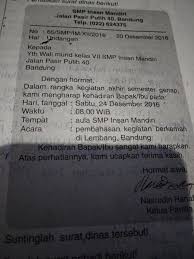 SMP Insan Mandiri
Jalan Pasir Putih 40, Bandung
Telp. (022) 624375
No : 65/SMP/IM/XII/2016
20 Desember 2016
Hal : Undangan
Kepada
Yth Wali murid kelas VII SMP Insan Mandiri
Jalan Pasir Putih 40
Bandung
Dengan hormat,
Dalam rangka kegiatan akhir semester ganjil,
kami mengharap kehadiran Bapak/Ibu pada:
Hari, tanggal : Sabtu, 24 Desember 2016
Waktu : 08.00 WIB
Tempat : aula SMP Insan Mandiri
Acara : pembahasan kegiatan berkemah
di Lembang, Bandung
Kehadiran Bapak/Ibu sangat kami harapkan.
Atas perhatiannya, kami ucapkan terima kasih.
Hormat
Nasrudin
Ketua Panitia
Suntinglah surat dinas tersebut!